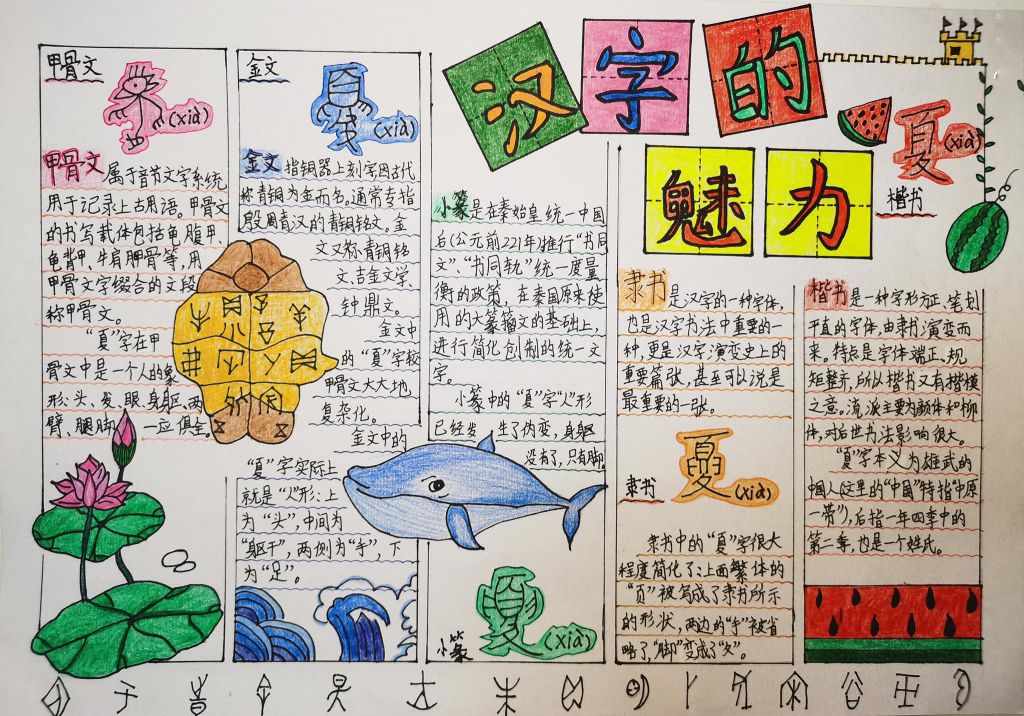 汉字的
魅力
甲骨文
(xià)
甲骨文 属于音节文字系统,
用于记录上古用语。甲骨文
的书写载体包括龟腹甲、
龟背甲、牛肩胛骨等,用
甲骨文字缀合的文段
称甲骨文。
“夏”字在甲
骨文中是一个人的象
形:头、发、眼、身躯、两
臂、腿脚一应俱全。
金文
(xià)
金文 指铜器上刻字因古代
称青铜为金而名。通常专指
殷周青汉的青铜铭文。金
文又称青铜铭
文、吉金文学、
钟鼎文。
金文中
的“夏”字较
甲骨文大大地
复杂化。
金文中的
“夏”字实际上
就是“人”形:上
为“头”,中间为
“躯干”,两侧为“手”,下
为“足”。
小篆是在秦始皇统一中国
后(公元前221年)推行“书同
文”、“书同轨”统一度量
衡的政策,在秦国原来使
用的大篆籀文的基础上,
进行简化创制的统一文
字。
小篆中的“夏”字“人”形
已经发生了伪变,身躯
没有了,只有脚。
小篆
(xià)
隶书是汉字的一种字体,
也是汉字书法中重要的一
种,更是汉字演变史上的
重要篇张,甚至可以说是
最重要的一张。
隶书
夏(xià)
隶书中的“夏”字很大
程度简化了:上面繁体的
“页”被写成了隶书所示
的形状,两边的“手”被省
略了,“脚”变成了“夂”。
夏(xià)
楷书
楷书是一种字形方正、笔划
平直的字体,由隶书演变而
来。特点是字体端正、规
矩整齐,所以楷书又有楷模
之意。流派主要为颜体和柳
体,对后世书法影响很大。
“夏”字本义为雄武的
中国人(这里的“中国”特指“中原
一带”),后指一年四季中的
第二季,也是一个姓氏。